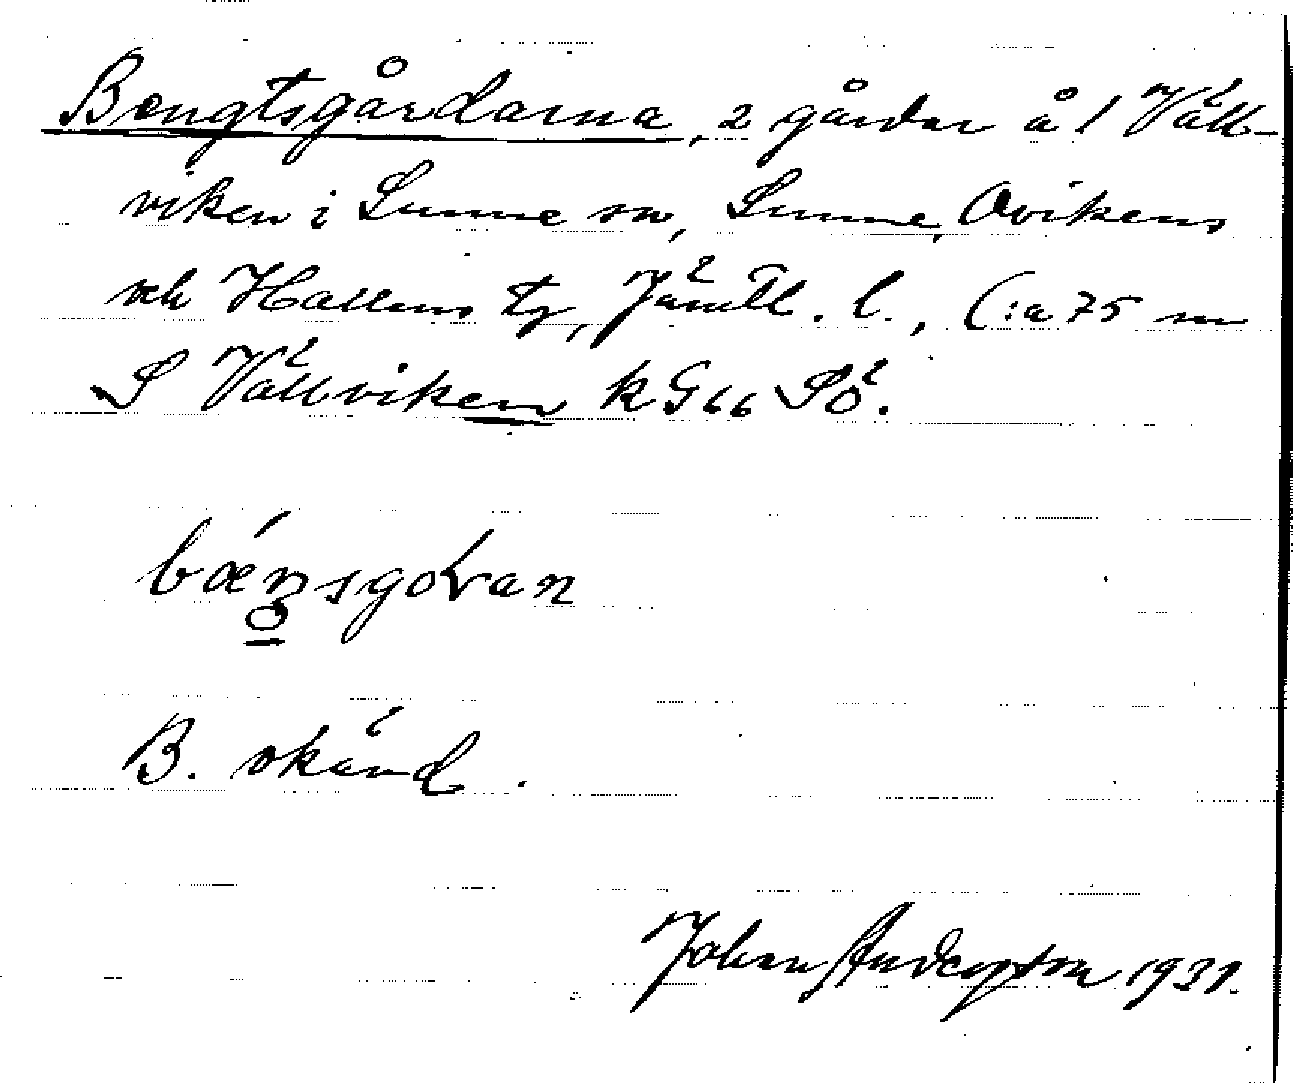 Bengtsgårdarna, 2 gårdar å 1 Väll-
viken i Sunne sn, Sunne, Ovikens
och Hallens tg, Jämtl. l., (:a 75 m
S Vällviken k G66 SÖ.
B. okänd.
Johan Andersson 1931.